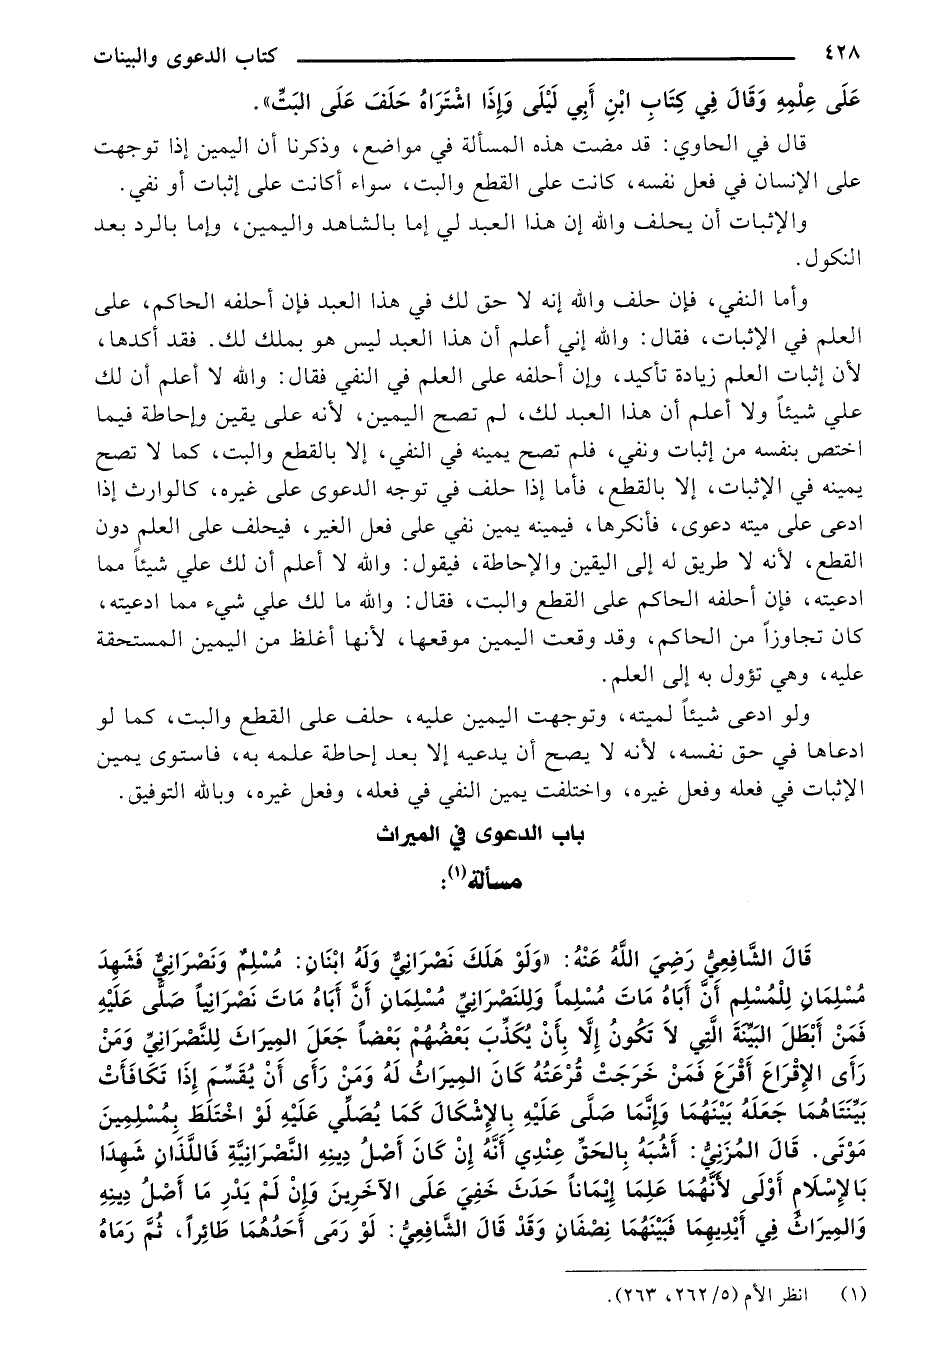 ٤٢٨ كتاب الدعوى والبينات
عَلَى عِلْمِهِ وَقَالَ فِي كِتَابِ ابْنِ أَبِي لَيْلَى وَإِذَا اشْتَرَاهُ حَلَفَ عَلَى البَتِّ».
قال في الحاوي: قد مضت هذه المسألة في مواضع، وذكرنا أن اليمين إذا توجهت
على الإنسان في فعل نفسه، كانت على القطع والبت، سواء أكانت على إثبات أو نفي.
والإثبات أن يحلف والله إن هذا العبد لي إما بالشاهد واليمين، وإما بالرد بعد
النكول.
وأما النفي، فإن حلف والله إنه لا حق لك في هذا العبد فإن أحلفه الحاكم، على
العلم في الإثبات، فقال: والله إني أعلم أن هذا العبد ليس هو بملك لك. فقد أكدها،
لأن إثبات العلم زيادة تأكيد، وإن أحلفه على العلم في النفي فقال: والله لا أعلم أن لك
علي شيئاً ولا أعلم أن هذا العبد لك، لم تصح اليمين، لأنه على يقين وإحاطة فيما
اختص بنفسه من إثبات ونفي، فلم تصح يمينه في النفي، إلا بالقطع والبت، كما لا تصح
يمينه في الإثبات، إلا بالقطع، فأما إذا حلف في توجه الدعوى على غيره، كالوارث إذا
ادعى على ميته دعوى، فأنكرها، فيمينه يمين نفي على فعل الغير، فيحلف على العلم دون
القطع، لأنه لا طريق له إلى اليقين والإحاطة، فيقول: والله لا أعلم أن لك علي شيئاً مما
ادعيته، فإن أحلفه الحاكم على القطع والبت، فقال: والله ما لك علي شيء مما ادعيته،
كان تجاوزاً من الحاكم، وقد وقعت اليمين موقعها، لأنها أغلظ من اليمين المستحقة
عليه، وهي تؤول به إلى العلم.
ولو ادعى شيئاً لميته، وتوجهت اليمين عليه، حلف على القطع والبت، كما لو
ادعاها في حق نفسه، لأنه لا يصح أن يدعيه إلا بعد إحاطة علمه به، فاستوى يمين
الإثبات في فعله وفعل غيره، واختلفت يمين النفي في فعله، وفعل غيره، وبالله التوفيق.
باب الدعوى في الميراث
مسألة(١):
قَالَ الشَّافِعِيُّ رَضِيَ اللَّهُ عَنْهُ: «وَلَوْ هَلَكَ نَصْرَانِيٌّ وَلَهُ ابْنَانِ: مُسْلِمٌ وَنَصْرَانِيٌّ فَشَهِدَ
مُسْلِمَانِ لِلْمُسْلِمِ أَنَّ أَبَاهُ مَاتَ مُسْلِماً وَلِلنَصْرَانِيِّ مُسْلِمَانِ أَنَّ أَبَاهُ مَاتَ نَصْرَانِياً صَلَّى عَلَيْهِ
فَمَنْ أَبْطَلَ البَيِّنَةَ الَّتِي لاَ تَكُونُ إِلَّا بِأَنْ يُكَذِّبَ بَعْضُهُمْ بَعْضاً جَعَلَ المِيرَاثَ لِلنَّصْرَانِيِّ وَمَنْ
رَأَى الإِقْرَاعَ أَقْرَعَ فَمَنْ خَرَجَتْ قُرْعَتُهُ كَانَ المِيرَاثُ لَهُ وَمَنْ رَأَى أَنْ يُقَسِّمَ إِذَا تَكَافَأَتْ
بَيِّنَتَاهُمَا جَعَلَهُ بَيْنَهُمَا وَإِنَّمَا صَلَّى عَلَيْهِ بِالإِشْكَالَ كَمَا يُصَلِّي عَلَيْهِ لَوْ اخْتَلَطَ بِمُسْلِمِينَ
مَوْتَى. قَالَ المُزَنِيُّ: أَشْبَهُ بِالحَقِّ عِنْدِي أَنَّهُ إِنْ كَانَ أَصْلُ دِينِهِ النَّصْرَانِيَّةِ فَاللَّذَانِ شَهِدَا
بَالإِسْلاَمِ أَوْلَى لأَنَّهُمَا عَلِمَا إِيْمَاناً حَدَثَ خَفِيَ عَلَى الآخَرِينَ وَإِنْ لَمْ يَدْرِ مَا أَصْلُ دِينِهِ
وَالمِيرَاثُ فِي أَيْدِيهِمَا فَبَيْنَهُمَا نِصْفَانِ وَقَدْ قَالَ الشَّافِعِيُّ: لَوْ رَمَى أَحَدُهُمَا طَائِراً، ثُمَّ رَمَاهُ
(١) انظر الأم (٥/ ٢٦٢، ٢٦٣).